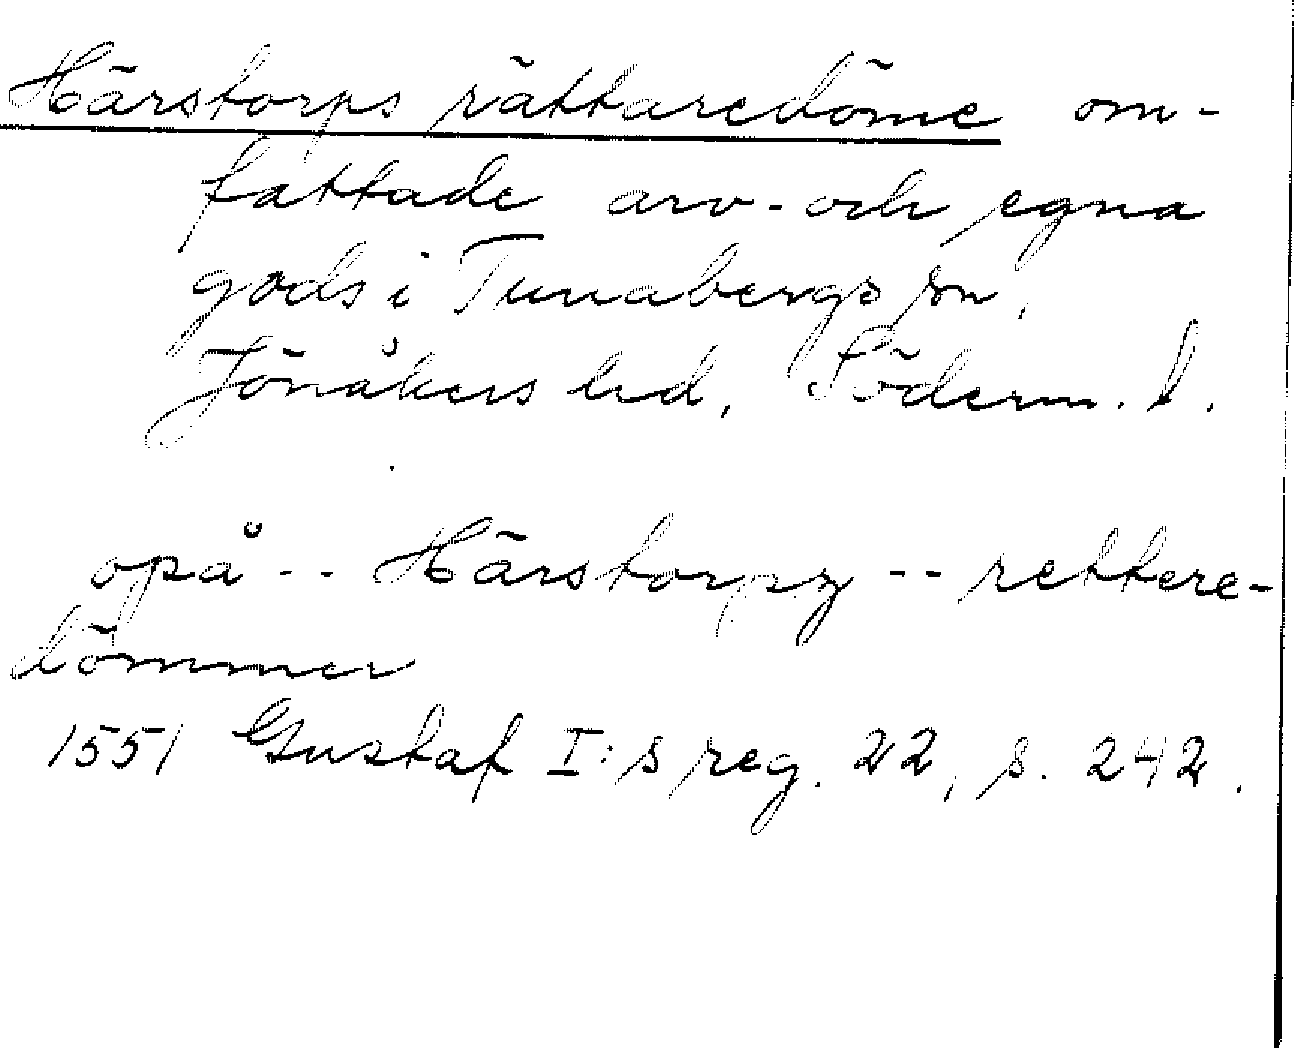 Härstorps rättaredöme om-
fattade arv- och egna
gods i Tunabergs sn,
Jönåkers hd, Söderm. l.
opå -- Härstorpz -- rettere-
dömmer
1551 Gustaf I:s reg. 22, s. 242.